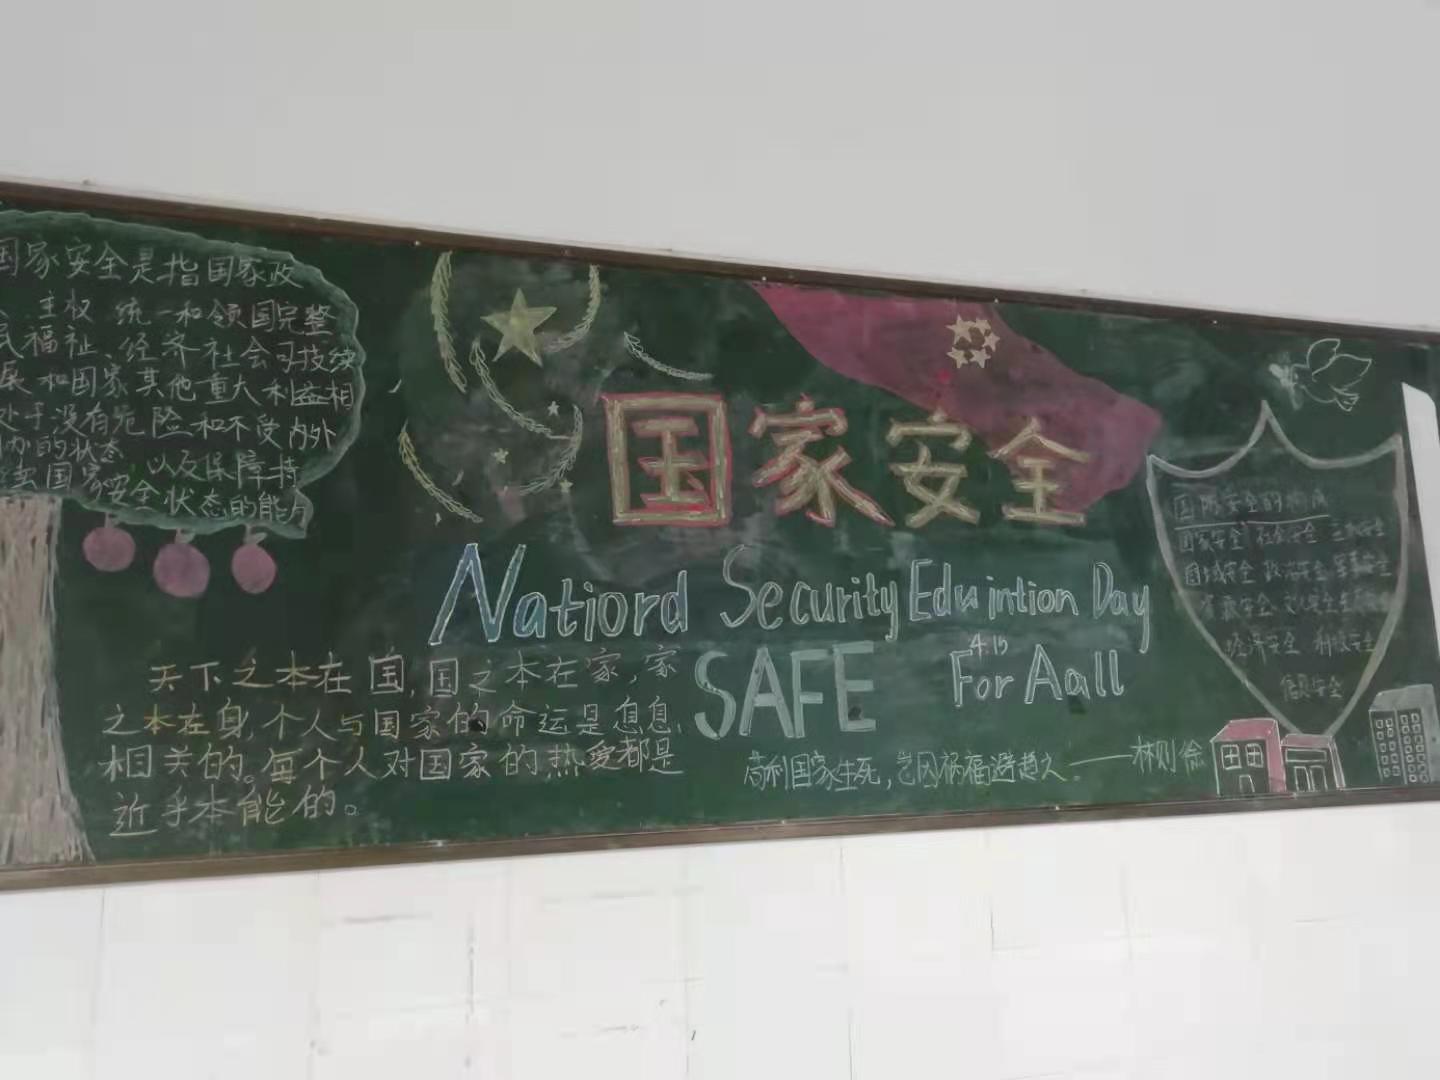 国家安全是指国家政
、主权 统一和领国完整
民福祉、经济社会可技续
展 和国家其他重大利益相
处于没有危险和不受内外
的状态
国家安全状态的能
以及保障持
国家安全
Natiord Security Eduintion Day
4.15
SAFE For Aall
天下之本在国,国之本在家,家
之本在身,个人与国家的命运是息息
相关的。每个人对国家的热爱都是
近乎本能的。
苟利国家生死,岂因祸福避趋之。——林则徐
国家安全 社会安全
国域安全 政治安全 军事安全
经济安全 科技安全
信息安全